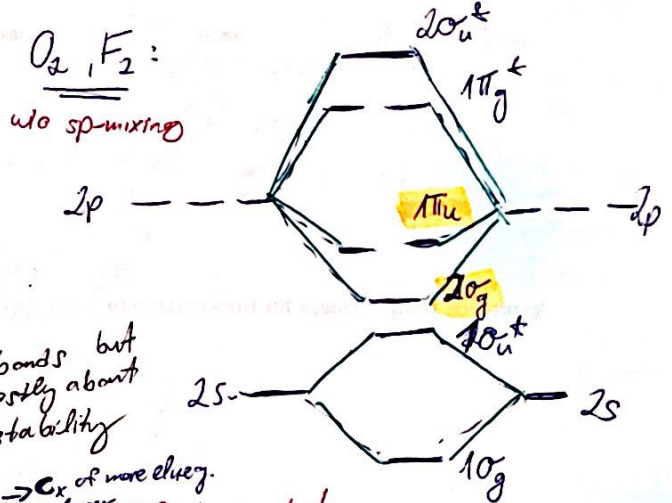 O₂, F₂:
w/o sp-mixing
2σᵤ*
1πg*
2p
1πᵤ
2p
2σg
1σᵤ*
bonds but
mostly about
stability
2s
2s
1σg
→ Cₓ of more elueg.